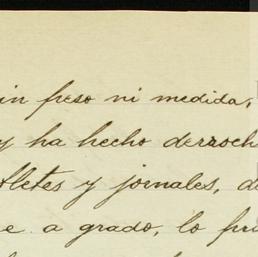 in peso ni medida,
y ha hecho derroch
fletes y jornales, d
e a grado, lo pri